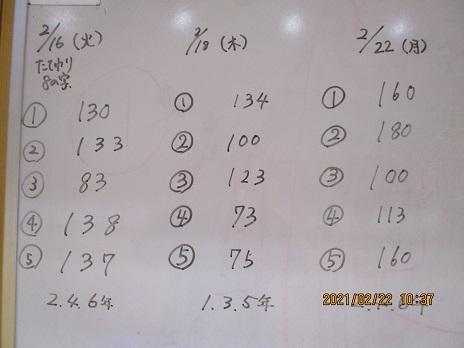 2/16(火)
たてわり
8の字
① 130
② 133
③ 83
④ 138
⑤ 137
2.4.6年
2/18(木)
① 134
② 100
③ 123
④ 73
⑤ 75
1.3.5年
2/22(月)
① 160
② 180
③ 100
④ 113
⑤ 160
2021/02/22 10:37